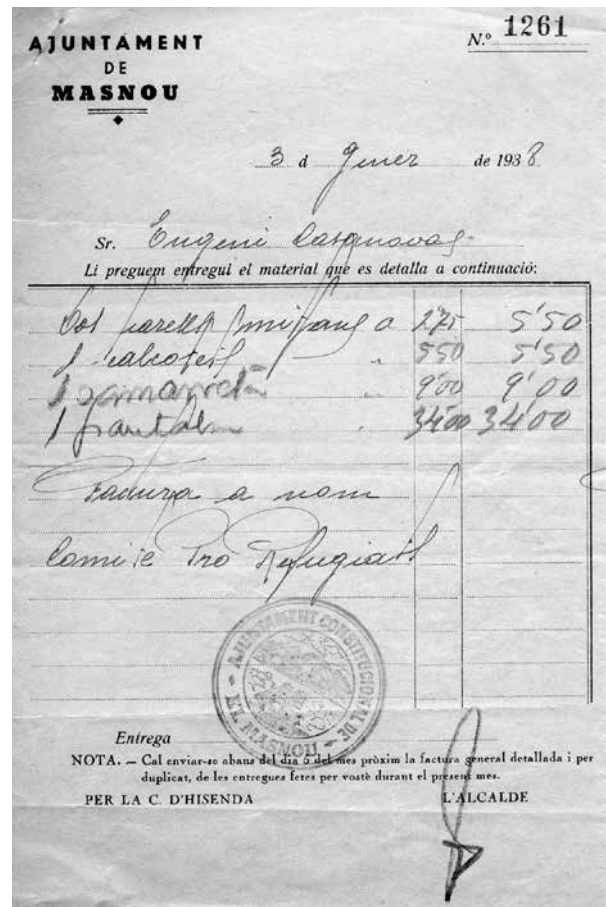 AJUNTAMENT
DE
MASNOU
N.º 1261
3 d Gener de 1938
Sr. Eugeni Casanovas
Li preguem entregui el material que es detalla a continuació:
Dos parells a 2'75 5'50
1 " 550 5'50
1 " 9'00 9'00
1 " 34'00 34'00
Factura a nom
Comite Pro Refugiats
AJUNTAMENT CONSTITUCIONAL DE
EL MASNOU
Entrega
NOTA. — Cal enviar-se abans del dia 5 del mes pròxim la factura general detallada i per
duplicat, de les entregues fetes per vostè durant el present mes.
PER LA C. D'HISENDA L'ALCALDE